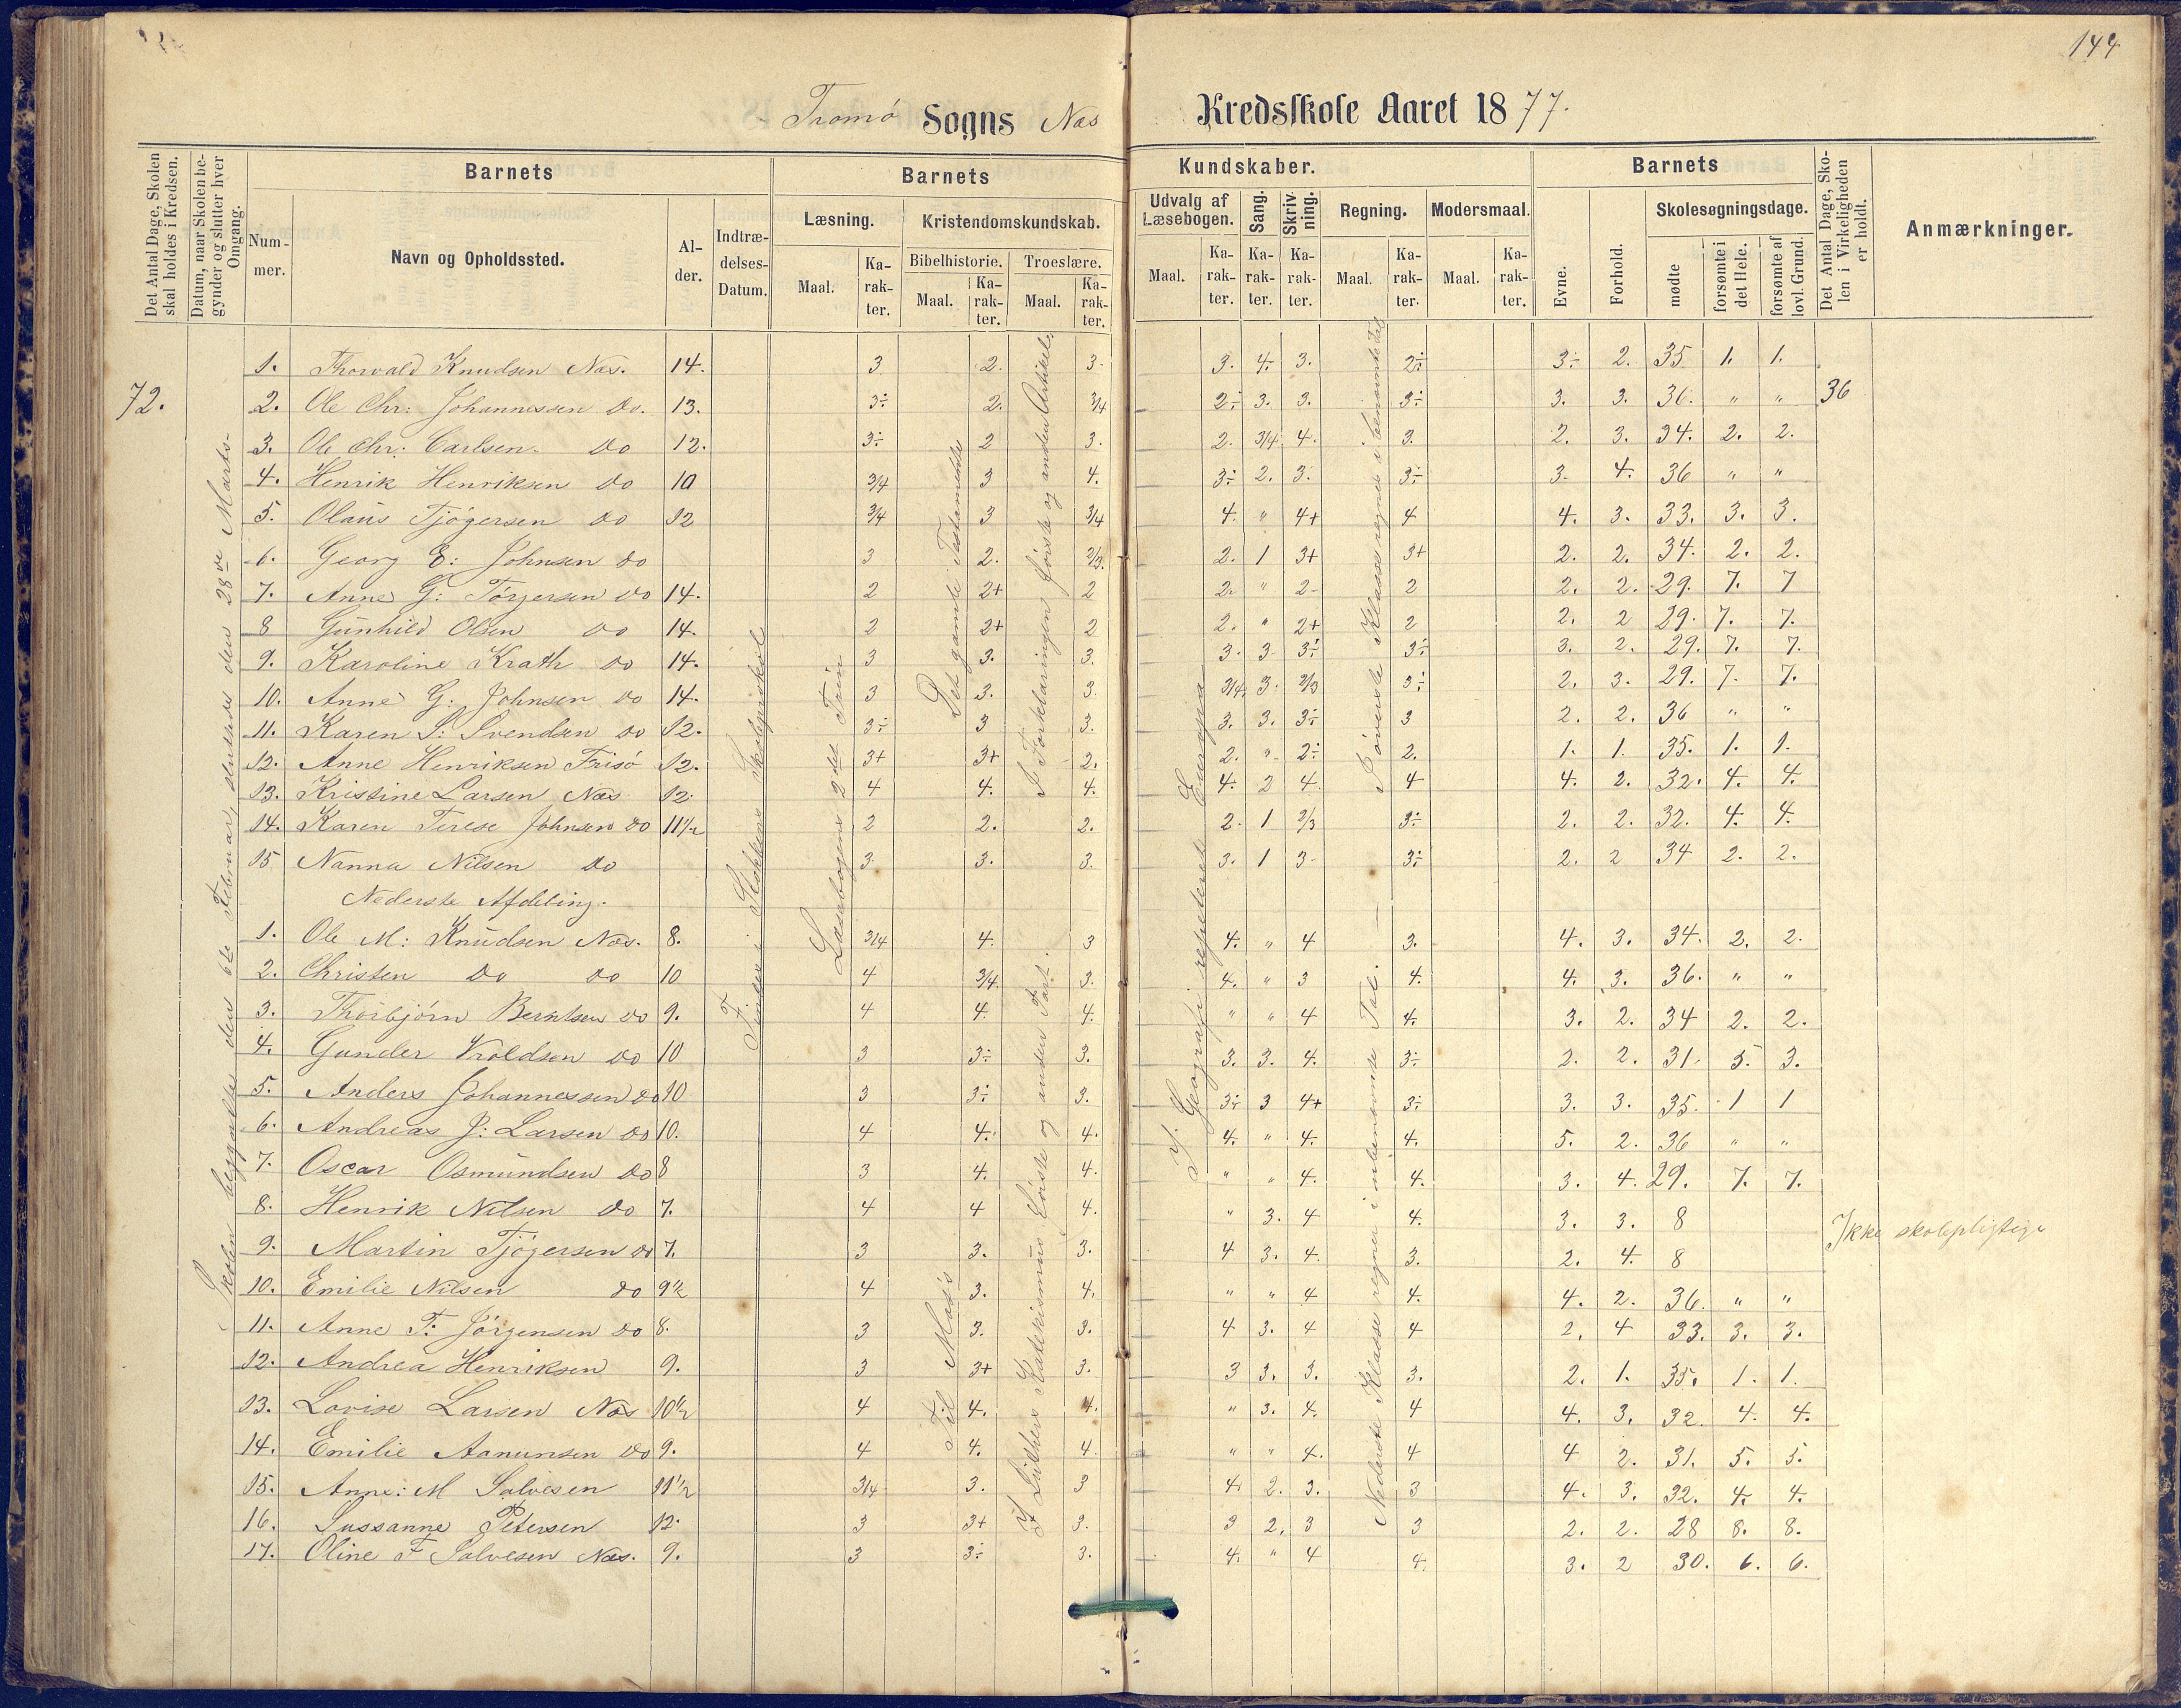 144
Tromø Sogns Næs Kredsskole Aaret 1877.
Det Antal Dage, Skolen skal holdes i Kredsen.
Datum, naar Skolen begynder og slutter hver Omgang.
Barnets
Nummer.
Navn og Opholdssted.
Alder.
Indtrædelses-Datum.
Barnets Kundskaber.
Læsning.
Maal.
Karakter.
Kristendomskundskab.
Bibelhistorie.
Maal.
Karakter.
Troeslære.
Maal.
Karakter.
Udvalg af Læsebogen.
Maal.
Karakter.
Sang.
Karakter.
Skrivning.
Karakter.
Regning.
Maal.
Karakter.
Modersmaal.
Maal.
Karakter.
Barnets
Evne.
Forhold.
Skolesøgningsdage.
mødte
forsømte i det Hele.
forsømte af lovl. Grund.
Det Antal Dage, Skolen i Virkeligheden er holdt.
Anmærkninger.
72.
Skolen begyndte den 6te Februar, sluttede den 28de Marts
Findes i Stokkens Skoleprotokol
Læsebogens 2det Trin
Det gamle Testamente
I Forklaringen første og anden Artikel
I Geografi repeteret Europa
Øverste Klasse regnet i benævnte Tal
36
1. Thorvald Knudsen Næs. 14. 3 2. 3. 3. 4. 3. 2÷ 3÷ 2. 35 1. 1.
2. Ole Chr: Johannessen do. 13. 3÷ 2. 3/4 2÷ 3. 3. 3÷ 3. 3. 36. " "
3. Ole Chr: Carlsen do 12. 3÷ 2 3. 2. 3/4 4. 3. 2. 3. 34. 2. 2.
4. Henrik Henriksen do 10 3/4 3 4. 3÷ 2. 3. 3÷ 3. 4. 36 " "
5. Olaus Tjøgersen do 12 3/4 3 3/4 4. " 4+ 4 4. 3. 33. 3. 3.
6. Georg E: Johnsen do 3 2. 2/3. 2. 1 3+ 3+ 2. 2. 34. 2. 2.
7. Anne G: Torjersen do 14. 2 2+ 2 2. " 2 2 2. 2. 29. 7. 7
8 Gunhild Olsen do 14. 2 2+ 2 2. " 2+ 2 2. 2 29. 7. 7.
9. Karoline Krath do 14. 3 3. 3. 3. 3 3÷ 3÷ 3. 2. 29. 7. 7.
10. Anne G: Johnsen do 14. 3 3. 3. 3/4 3. 2/3 3÷ 2. 3. 29. 7. 7.
11. Karen S: Svendsen do 12. 3÷ 3 3. 3. 3. 3÷ 3 2. 2. 36 " "
12. Anne Henriksen Frisø 12. 3+ 3+ 2. 2. " 2÷ 2. 1. 1. 35. 1. 1.
13. Kristine Larsen Næs 12. 4 4. 4. 4. 2 4. 4 4. 2. 32. 4. 4.
14. Karen Terese Johnsen do 11½ 2 2. 2. 2. 1 2/3 3÷ 2. 2. 32. 4. 4.
15 Nanna Nilsen do 3. 3. 3. 3. 1 3 3÷ 2. 2 34 2. 2.
Nederste Afdeling.
Til Mosis
I Luthers Katekismus første og anden Part.
Nederste Klasse regnet i ubenævnte Tal.
1. Ole M: Knudsen Næs. 8. 3/4 4. 3 4. " 4 3. 4. 3. 34. 2. 2.
2. Christen do do 10 4 3/4. 3. 4. " 3 4. 4. 3. 36. " "
3. Thorbjørn Berntsen do 9. 4 4. 4. " " 4 4. 3. 2. 34 2. 2.
4. Gunder Kroldsen do 10 3 3÷ 3. 3. 3. 4. 3÷ 2. 2. 31. 3. 3.
5. Anders Johannessen do 10 3 3÷ 3. 3÷ 3 4+ 3÷ 3. 3. 35. 1 1
6. Andreas J: Larsen do 10. 4 4. 4. 4. " 4. 4. 5. 2. 36 " "
7. Oscar Osmundsen do 8 3 4. 4. " " 4. 4. 3. 4. 29. 7. 7.
8. Henrik Nilsen do 7. 4 4 4. " 3. 4 4. 3. 3. 8 Ikke skolepligtige
9. Martin Tjøgersen do 7. 3 3. 3. 4 3. 4. 3. 2. 4. 8
10. Emilie Nilsen do 9½ 4 3. 4. " " 4 4. 4. 2. 36. " "
11. Anne T: Jörgensen do 8. 3 3. 3. 4 3. 4 4 2. 4 33. 3. 3.
12. Andrea Henriksen 9. 3 3+ 3. 3 3. 3. 3. 2. 1. 35. 1. 1.
13. Lovise Larsen Næs 10½ 4 4. 4. " 3. 4. 4 4. 3. 32. 4. 4.
14. Emilie Aanunsen do 9. 4 4. 4. " " 4. 4 4 2. 31. 5. 5.
15. Anne: M Salvesen 11½ 3/4 3. 3 4. 2. 3. 3 4. 3. 32. 4. 4.
16. Sussanne Petersen 12. 3 3+ 3. 3 2. 3 3 2. 2. 28 8. 8.
17. Oline F Salvesen Næs. 9. 3 3÷ 3. 4. " 4 4. 3. 2 30. 6. 6.